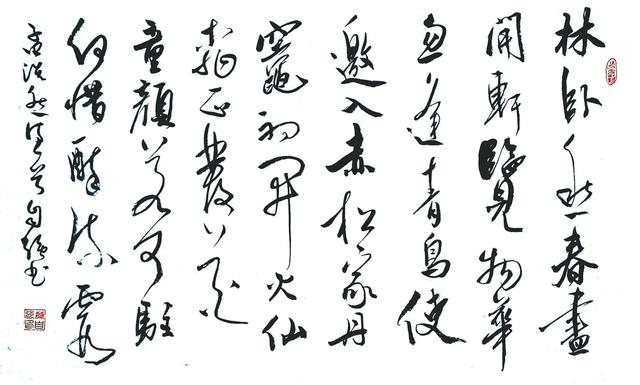 林卧愁春盡
開軒覽物華
忽逢青鳥使
邀入赤松家丹
竈初開火仙
桃正發花
童顏若可駐
何惜醉流霞
浩然 書